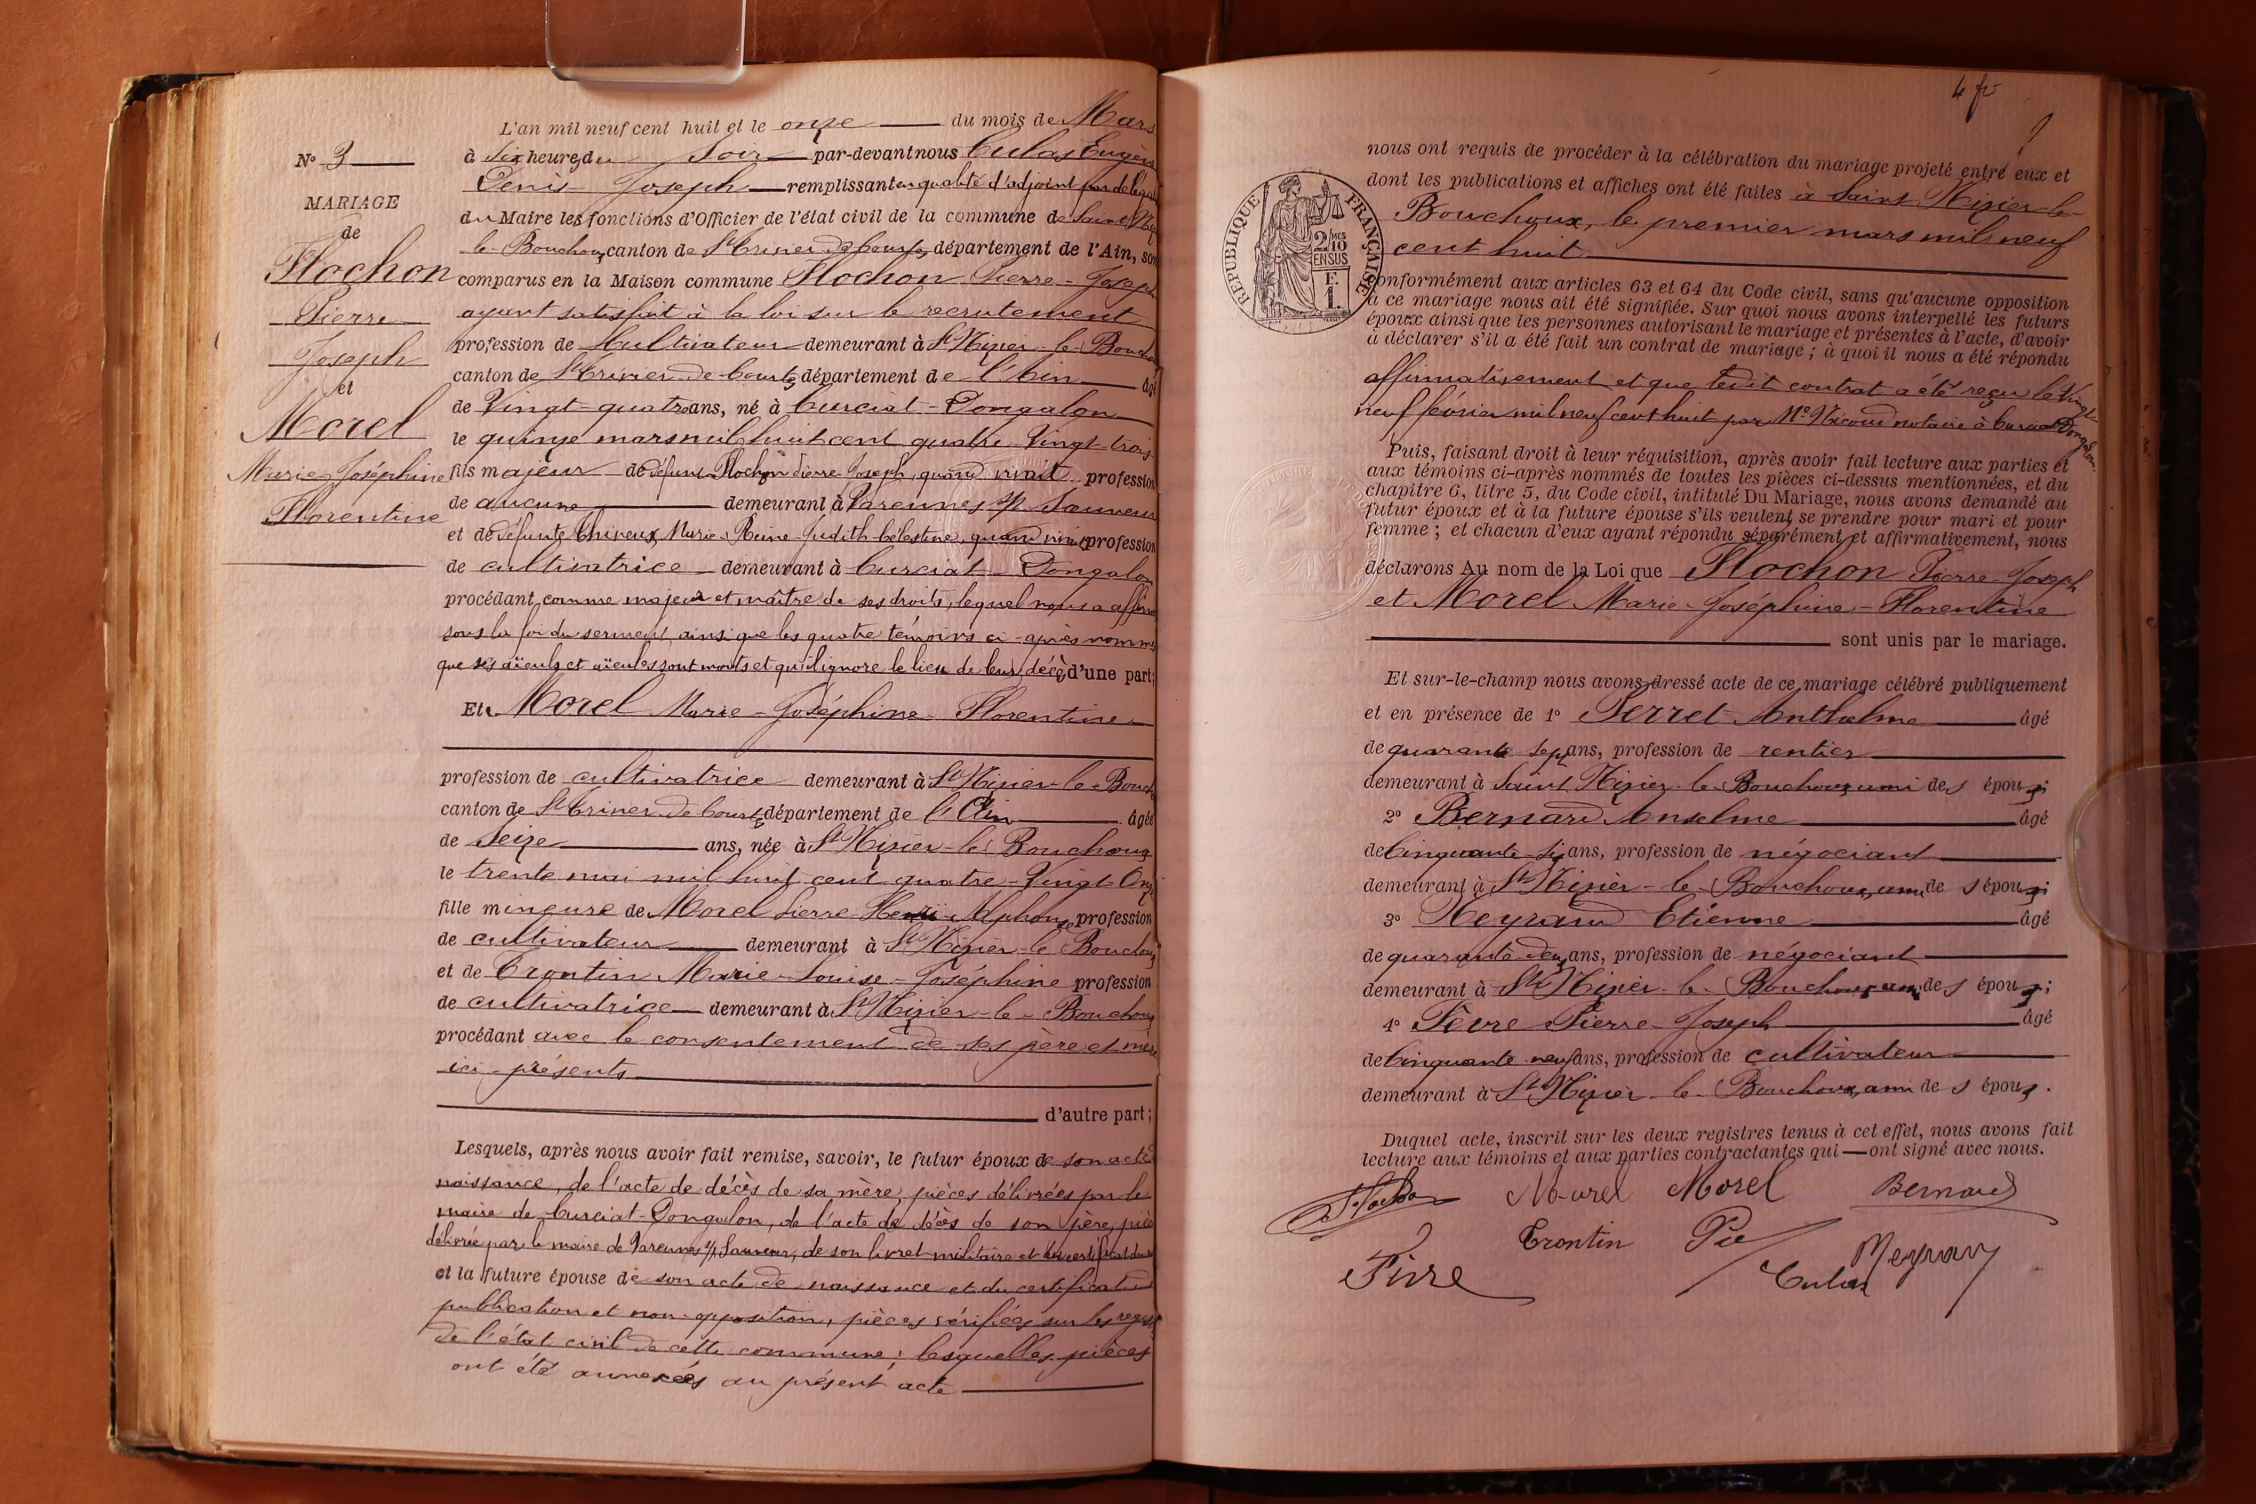 N° 3
MARIAGE
de
Flochon
Pierre
Joseph
et
Morel
Marie-Joséphine
Florentine
L'an mil neuf cent huit et le onze du mois de Mars
à Six heures du Soir par-devant nous Culas Eugène
Denis Joseph remplissant en qualité d'adjoint par délégation
du Maire les fonctions d'Officier de l'état civil de la commune de Saint Niz
le Bouchoux canton de St Trivier de Courtes, département de l'Ain, son
comparus en la Maison commune Flochon Pierre-Joseph
ayant satisfait à la loi sur le recrutement
profession de Cultivateur demeurant à St Nizier-le-Bouchou
canton de St Trivier-de-Courtes département de l'Ain âgé
de Vingt-quatre ans, né à Curciat-Dongalon
le quinze mars mil huit cent quatre-Vingt-trois
fils majeur de défunt Flochon Pierre Joseph, quand vivait profession
de aucune demeurant à Varennes s/s Sauveur
et de défunte Chireux Marie Reine Judith Célestine, quand vivait profession
de cultivatrice demeurant à Curciat-Dongalon
procédant comme majeur et maître de ses droits, lequel nous a affirmé
sous la foi du serment ainsi que les quatre témoins ci-après nommés
que ses aïeuls et aïeules sont morts et qu'il ignore le lieu de leur décès d'une part;
Et Morel Marie-Joséphine-Florentine
profession de cultivatrice demeurant à St Nizier-le-Bouch
canton de St Trivier de Courtes département de l'Ain âgée
de Seize ans, née à St Nizier-le-Bouchoux
le trente mai mil huit cent quatre-Vingt-Onze
fille mineure de Morel Pierre-Henri-Alphonse profession
de cultivateur demeurant à St Nizier-le-Bouchoux
et de Trontin Marie-Louise-Joséphine profession
de cultivatrice demeurant à St Nizier-le-Bouchoux
procédant avec le consentement de ses père et mère
ici présents
d'autre part;
Lesquels, après nous avoir fait remise, savoir, le futur époux de son acte de
naissance, de l'acte de décès de sa mère, pièces délivrées par le
maire de Curciat-Dongalon, de l'acte de décès de son père, pièce
délivrée par le maire de Varennes s/s Sauveur, de son livret militaire et
et la future épouse de son acte de naissance et du certificat de
publication et non-opposition, pièces vérifiées sur les regist
de l'état civil de cette commune; lesquelles pièces
ont été annexées au présent acte
4 fv
nous ont requis de procéder à la célébration du mariage projeté entre eux et
dont les publications et affiches ont été faites à Saint Nizier-le-
Bouchoux, le premier mars mil neuf
cent huit
RÉPUBLIQUE FRANÇAISE
2/10 EN SUS
F.
1.
conformément aux articles 63 et 64 du Code civil, sans qu'aucune opposition
à ce mariage nous ait été signifiée. Sur quoi nous avons interpellé les futurs
époux ainsi que les personnes autorisant le mariage et présentes à l'acte, d'avoir
à déclarer s'il a été fait un contrat de mariage; à quoi il nous a été répondu
affirmativement et que ledit contrat a été reçu le Vingt-
neuf février mil neuf cent huit par Me notaire à Curciat Dongalon
Puis, faisant droit à leur réquisition, après avoir fait lecture aux parties et
aux témoins ci-après nommés de toutes les pièces ci-dessus mentionnées, et du
chapitre 6, titre 5, du Code civil, intitulé Du Mariage, nous avons demandé au
futur époux et à la future épouse s'ils veulent se prendre pour mari et pour
femme; et chacun d'eux ayant répondu séparément et affirmativement, nous
déclarons Au nom de la Loi que Flochon Pierre-Joseph
et Morel Marie-Joséphine-Florentine
sont unis par le mariage.
Et sur-le-champ nous avons dressé acte de ce mariage célébré publiquement
et en présence de 1° Perret Anthelme âgé
de quarante sept ans, profession de rentier
demeurant à Saint Nizier-le-Bouchoux, ami des époux;
2° Bernard Anselme âgé
de Cinquante-six ans, profession de négociant
demeurant à St Nizier-le-Bouchoux, ami des époux;
3° Meyrand Etienne âgé
de quarante deux ans, profession de négociant
demeurant à St Nizier-le-Bouchoux, ami des époux;
4° Fèvre Pierre-Joseph âgé
de Cinquante-neuf ans, profession de cultivateur
demeurant à St Nizier-le-Bouchoux, ami des époux.
Duquel acte, inscrit sur les deux registres tenus à cet effet, nous avons fait
lecture aux témoins et aux parties contractantes qui ont signé avec nous.
Flochon Morel Morel Bernard
Trontin
Fèvre Culas Meyrand